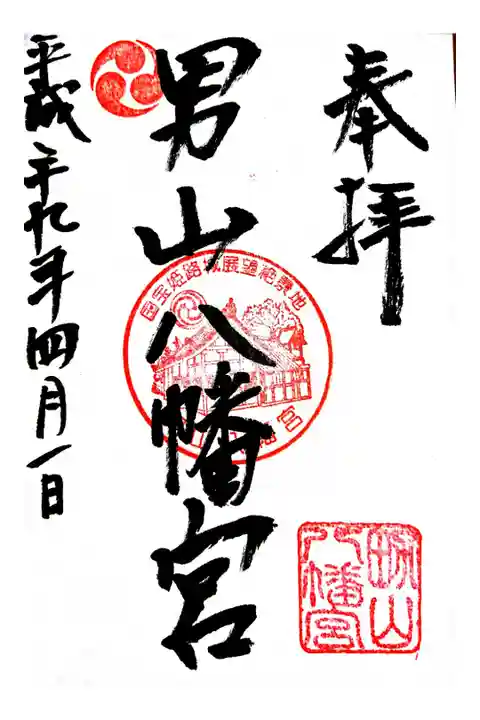 奉拝
男山八幡宮
平成二十九年四月一日
国宝姫路城展望絶景地
男山
八幡宮